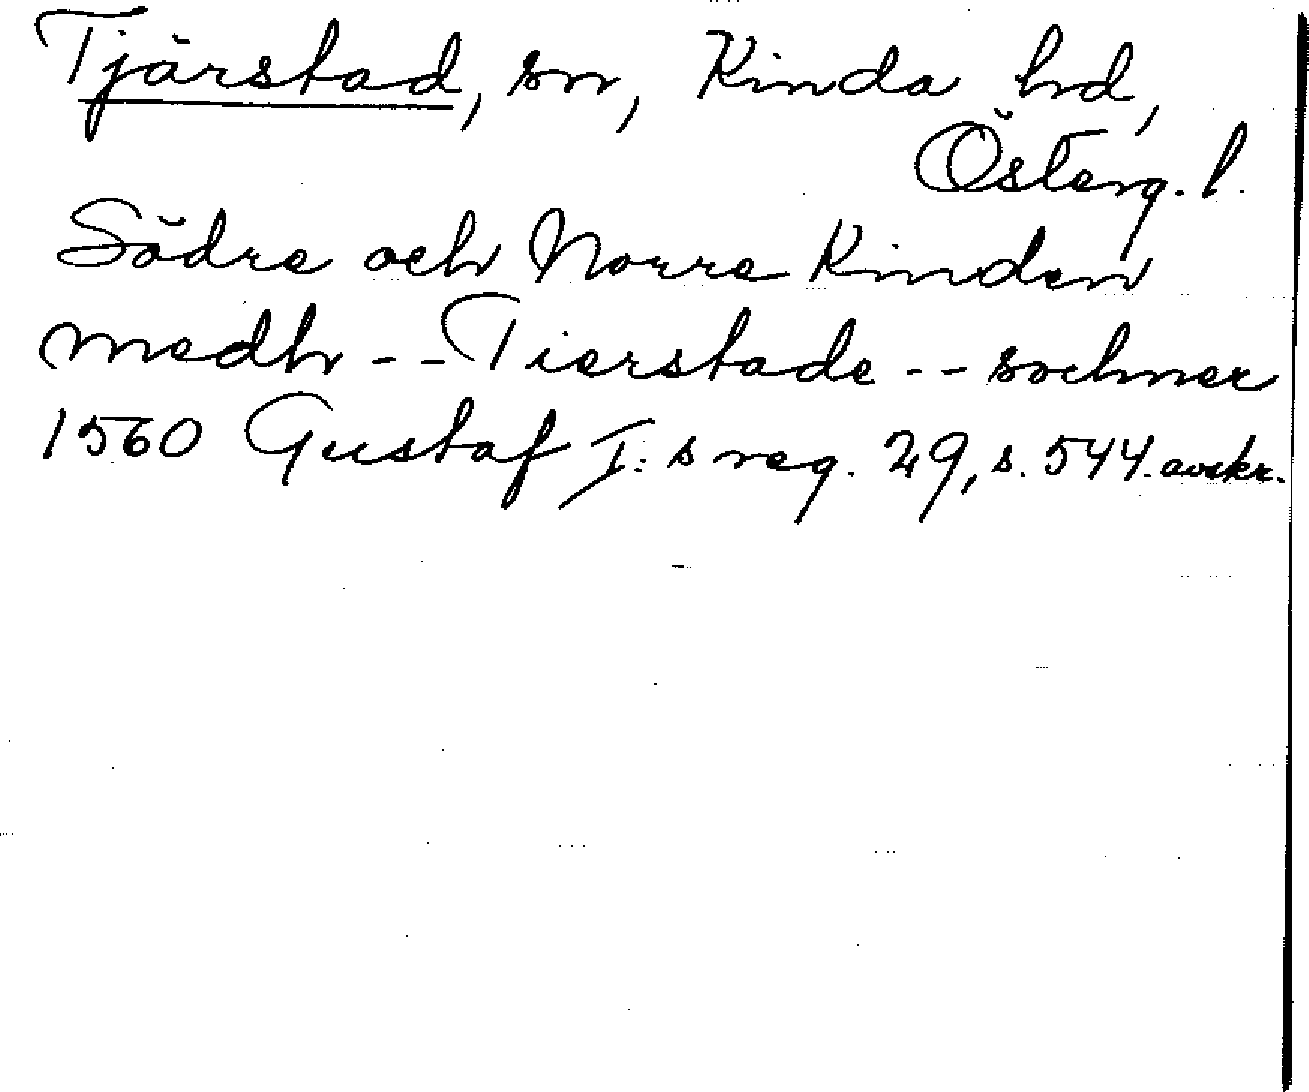 Tjärstad, sn, Kinda hd,
Österg. l.
Södre och Norre Kinden
medh -- Tierstade -- sochner
1560 Gustaf I:s reg. 29, s. 544. avskr.